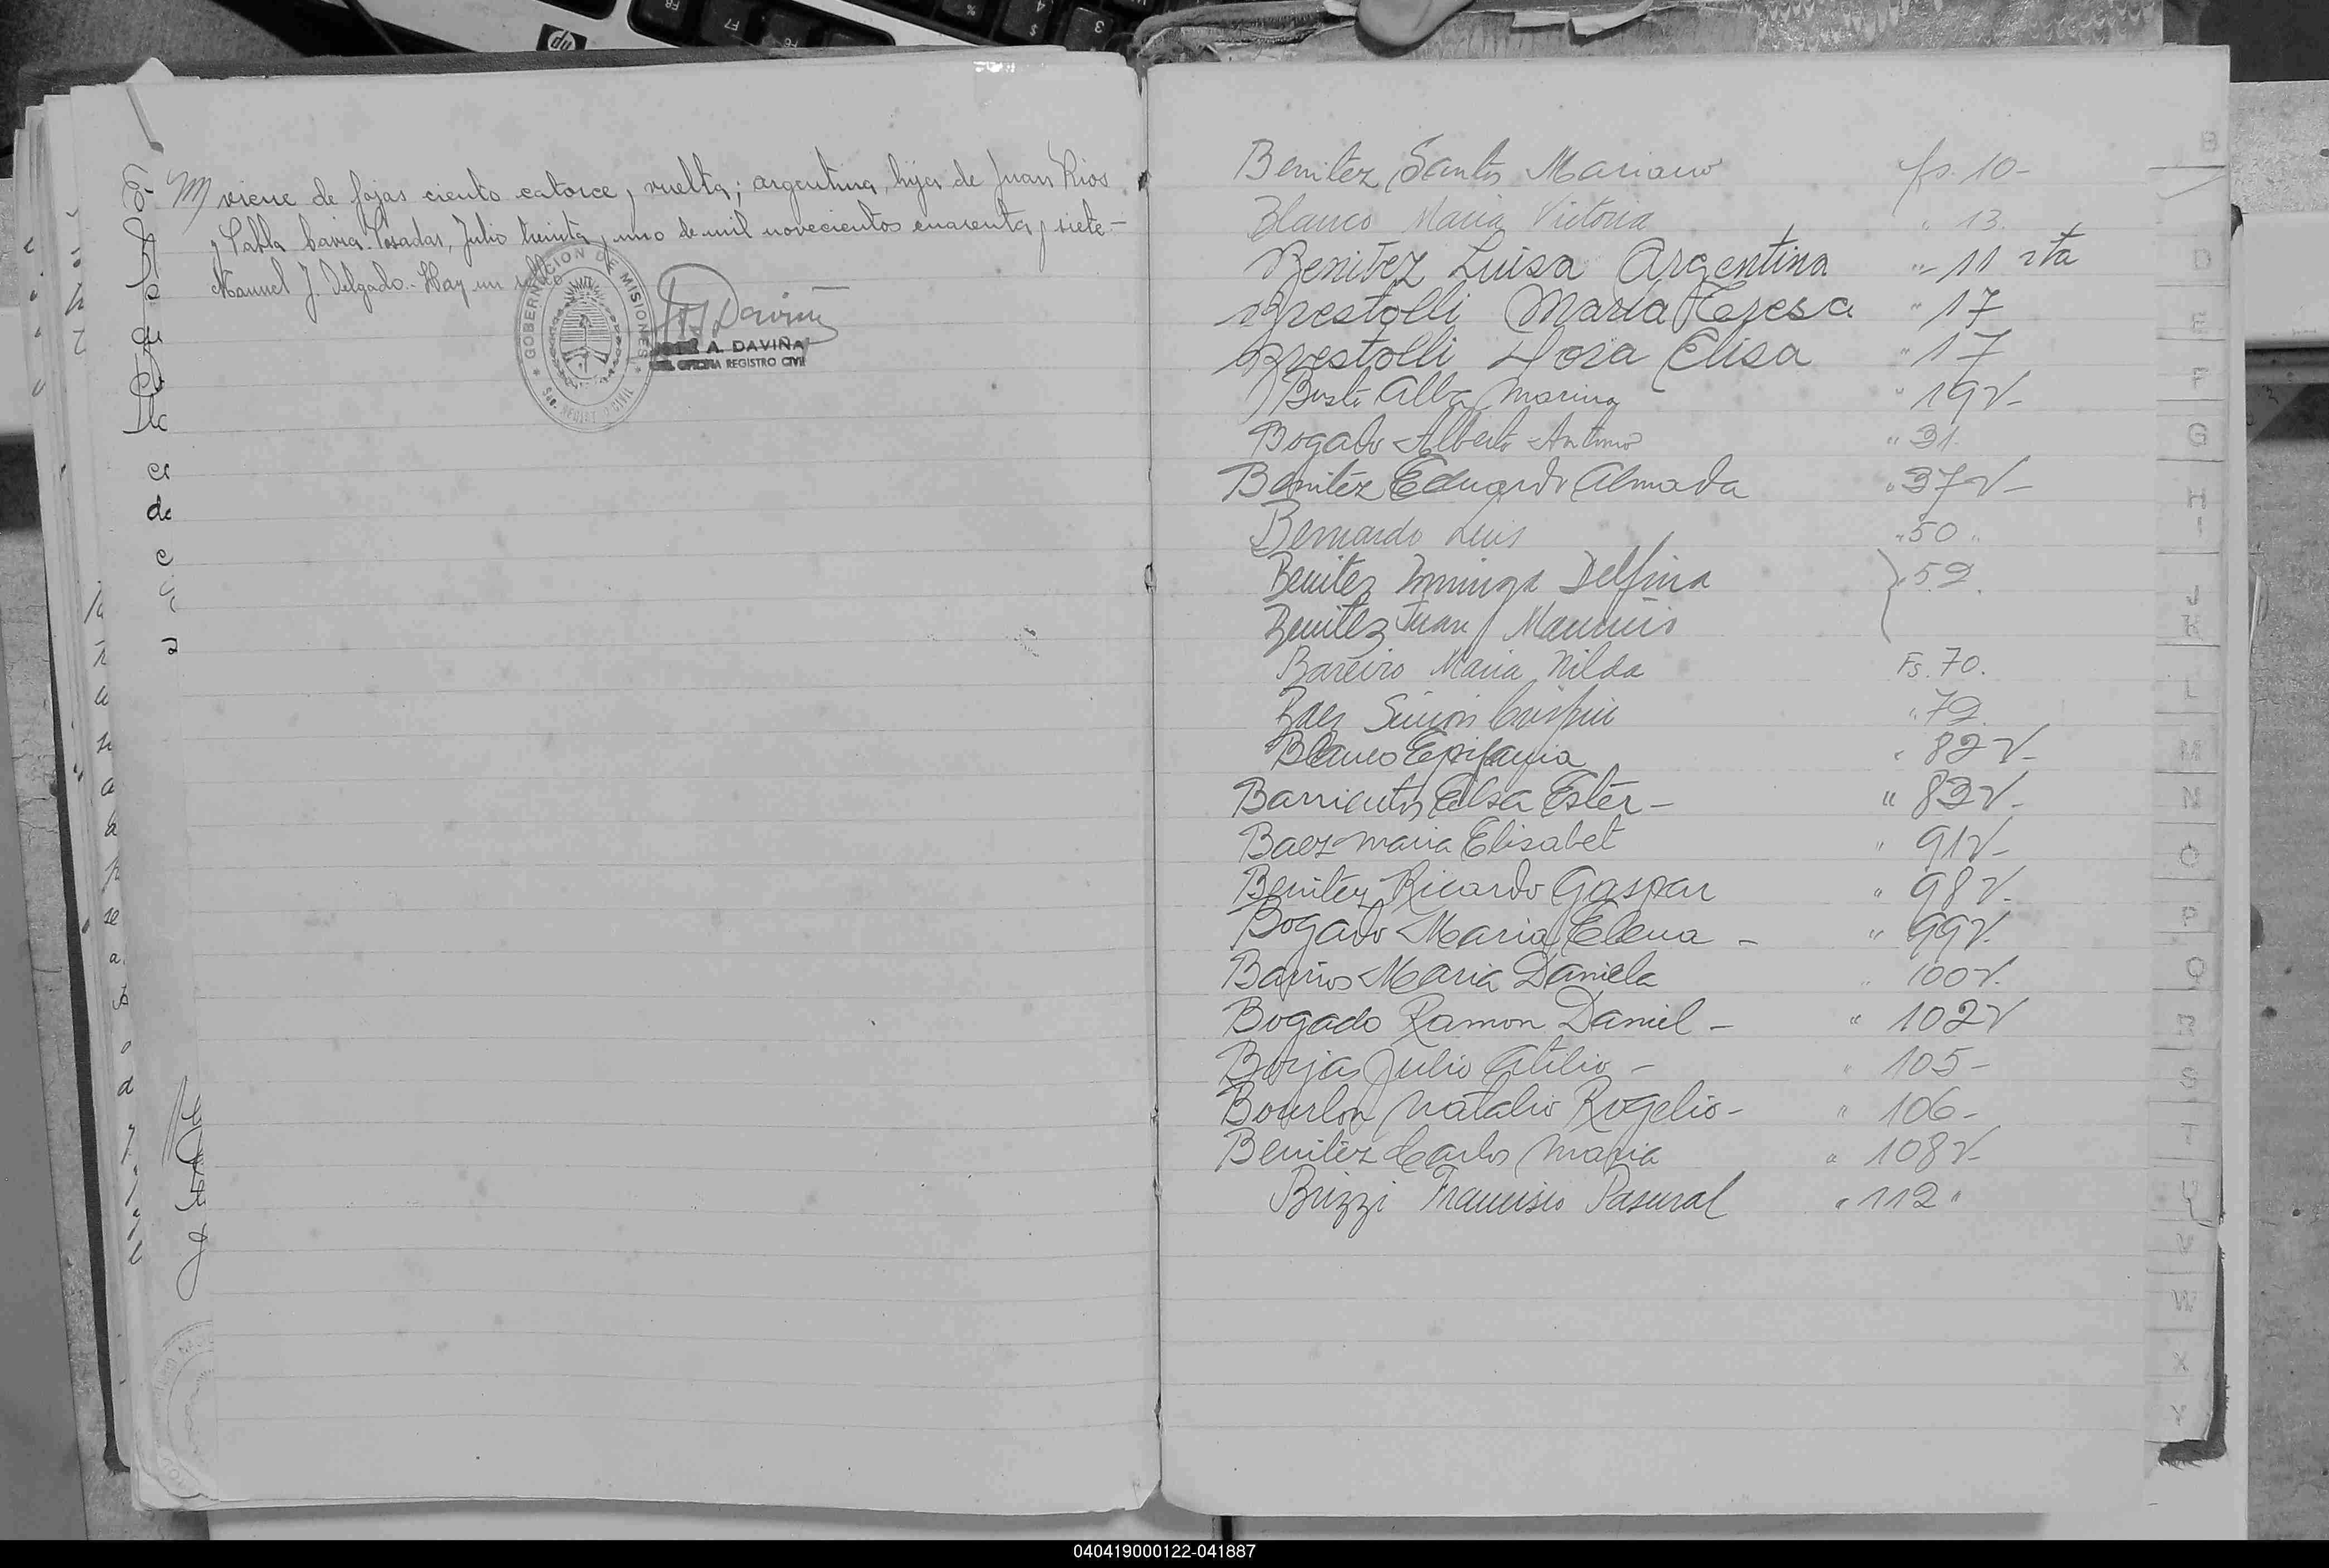 M) viene de fojas ciento catorce, vuelta; argentina, hija de Juan Rios
y Pabla Caria. Posadas, Julio treinta y uno de mil novecientos cuarenta y siete.-
Manuel J. Delgado.- Hay un sello
GOBERNACION DE MISIONES
Sec. REGIST. CIVIL
JOSE A. DAVIÑA
OFICINA REGISTRO CIVIL
Benitez Santos Mariano fs. 10-
Blanco Maria Victoria " 13.
Benitez Luisa Argentina " 11 vta
Brestolli María Teresa " 17
Brestolli Dora Elisa " 17
Busto Alba Marina " 19v-
Bogado Alberto Antonio " 31.
Benitez Eduardo Almada " 37v-
Bernardo Luis " 50 "
Benitez Dominga Delfina } " 52.
Benitez Juan Mauricio
Bareiro Maria Nilda Fs. 70.
Baez Simón Crispin " 72.
Blanco Epifania " 82v-
Barrientos Elsa Ester- " 83v-
Baez Maria Elisabet " 91v-
Benitez Ricardo Gaspar " 98v-
Bogado Maria Elena - " 99v.
Barrios Maria Daniela " 100v.
Bogado Ramon Daniel - " 102v
Borjas Julio Atilio - " 105-
Bourlon Natalio Rogelio- " 106-
Benitez Carlos Maria " 108v-
Brizzi Francisco Pascual " 112 "
B
D
E
F
G
H
I
J
K
L
M
N
O
P
Q
R
S
T
U
V
W
X
Y
hp
040419000122-041887